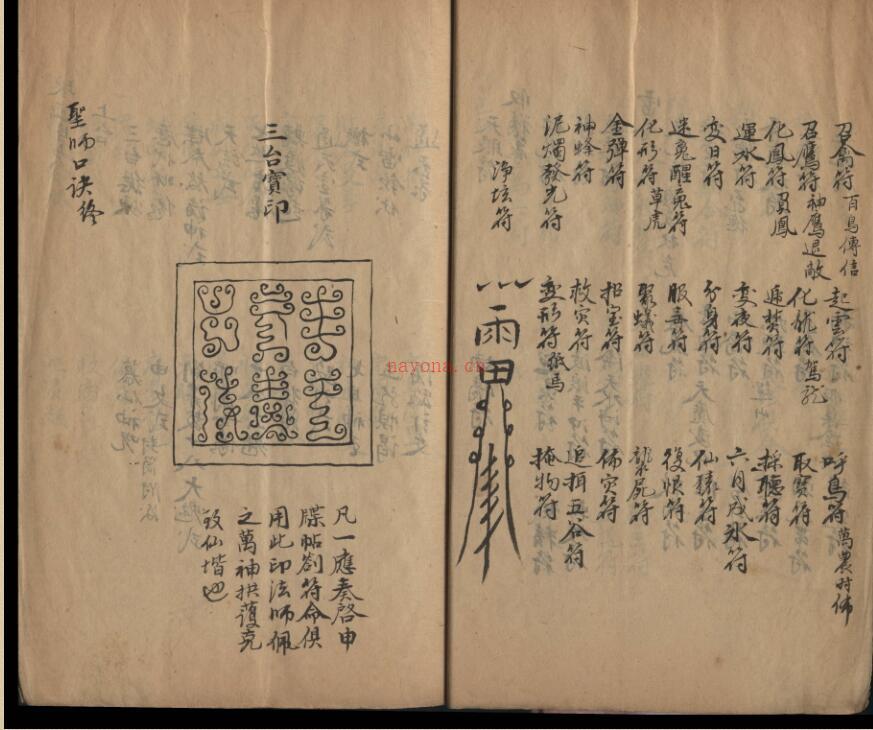 召禽符 百鳥傳信
起雲符
呼鳥符 萬農时佈
召鷹符 神鷹退敵
化龍符 駕龍
取寶符
化鳳符 負鳳
遞焚符
採聽符
運水符
变夜符
六月成氷符
变日符
分身符
仙猿符
迷䰟醒䰟符
服毒符
復恨符
化形符 草虎
聚蟻符
金彈符
招宝符
佈灾符
神蜂符
救灾符
追損五谷符
泥燭發光符
变形符 紙馬
掩物符
淨坛符
雨田
三台寳印
凡一應奏啓申
牒帖劄符命俱
用此印法師佩
之萬神拱護克
致仙堦也
聖师口訣終
nayona.cn